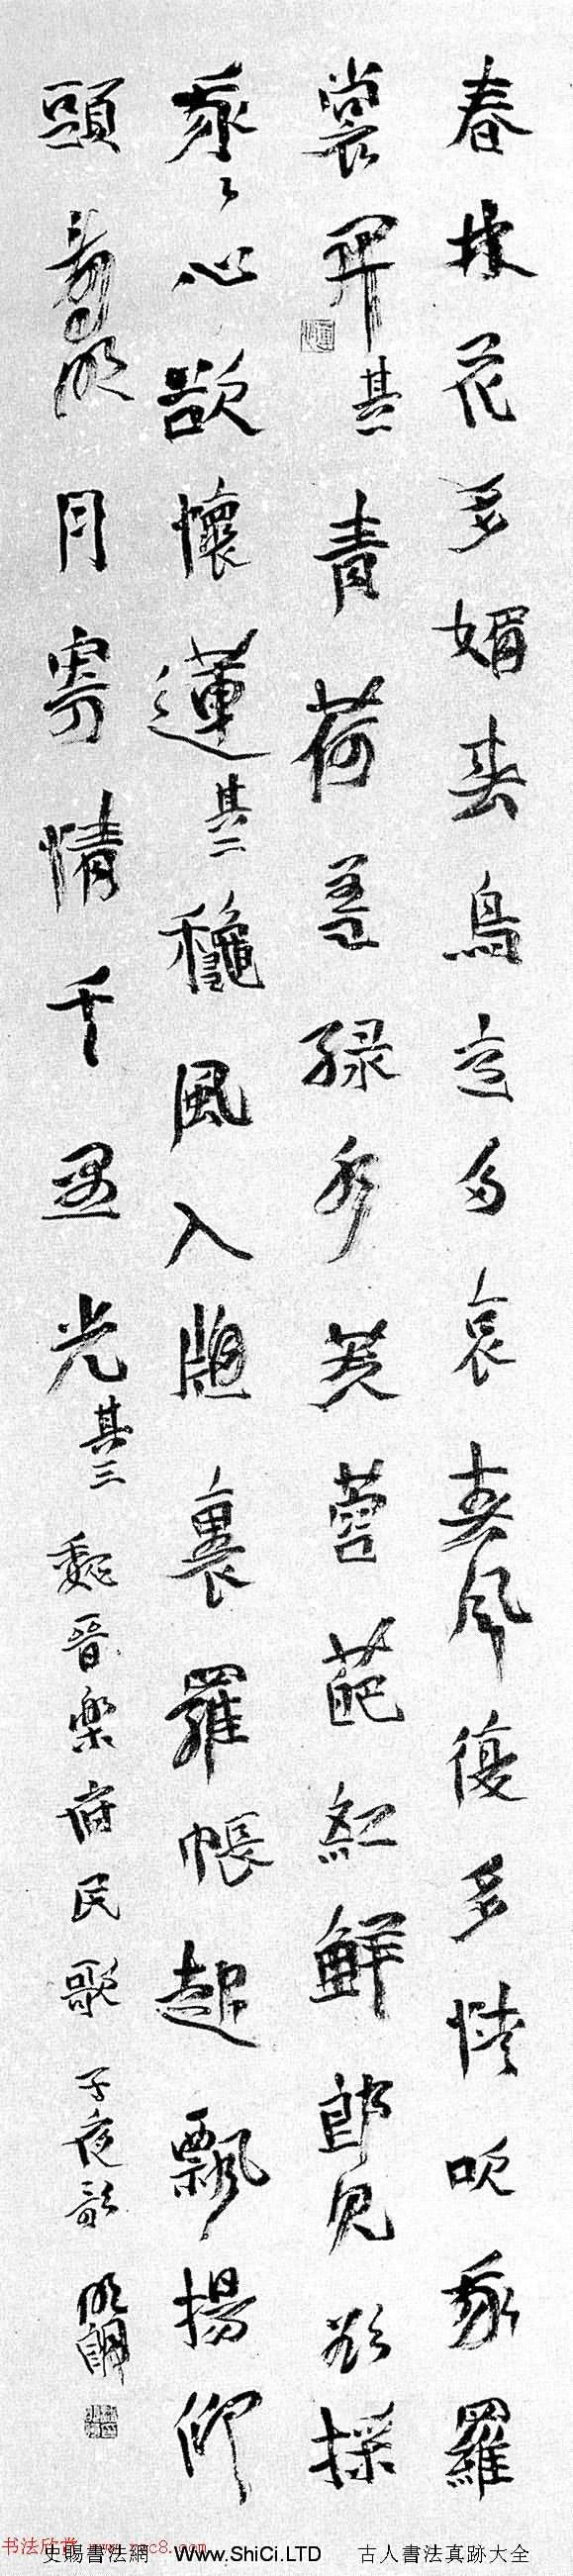 春林花多媚春鳥意多哀春風復多情吹我羅
裳開其一青荷蓋緑水芙蓉葩紅鮮郎見欲採
我我心欲懷蓮其二龝風入牕裏羅帳起飄揚仰
頭看明月寄情千里光其三魏晋樂府民歌子夜歌
史賜書法網 Www.ShiCi.LTD 古人書法真跡大全
书法欣赏